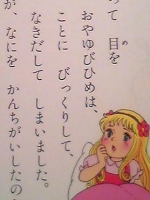 って 目を
おやゆびひめは、
ことに びっくりして、
なきだして しまいました。
が、なにを かんちがいしたの